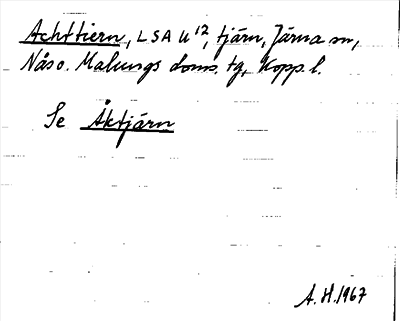 Achttiern, LSA U¹², tjärn, Järna sn,
Nås o. Malungs doms. tg, Kopp. l.
Se Åktjärn
A.H. 1967